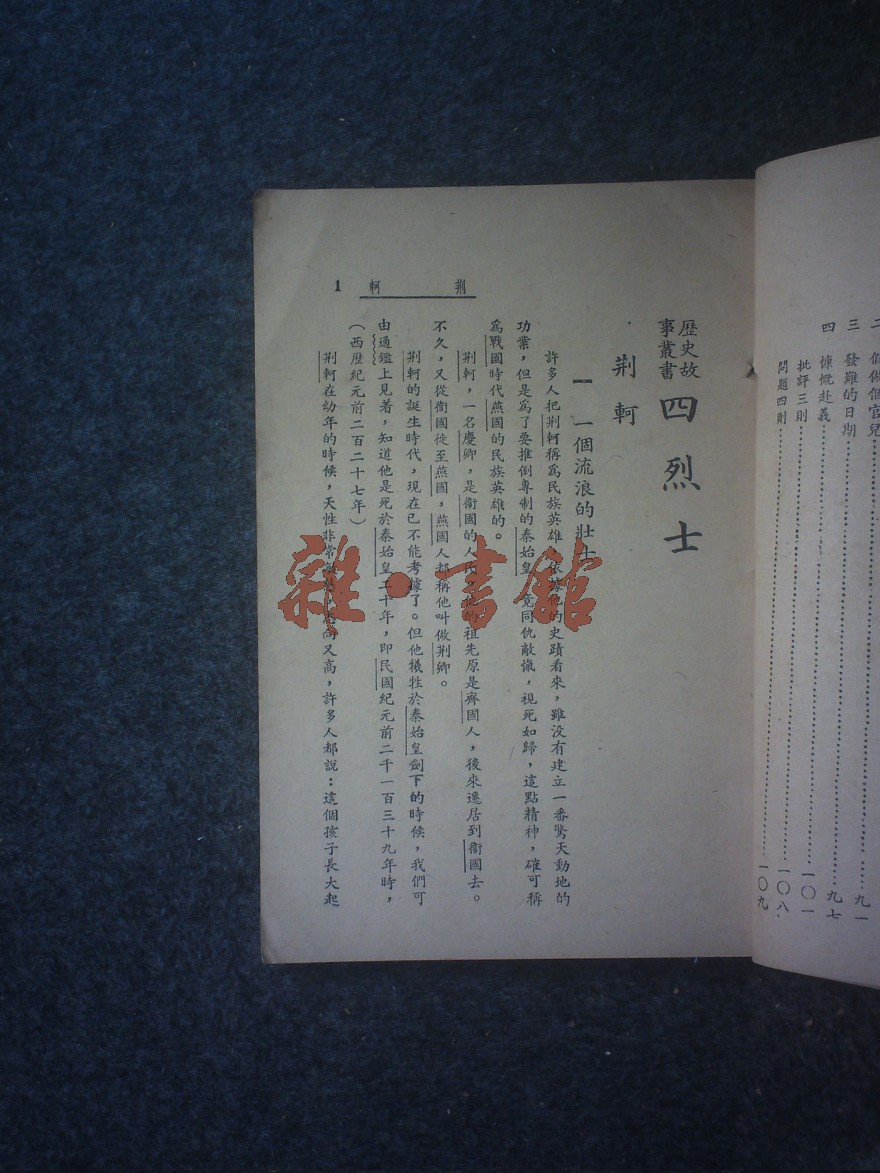 做個官兒
三 發難的日期
九一
四 慷慨赴義
九七
批評三則
一〇一
問題四則
一〇八
一〇九
歷史故事叢書 四烈士
荆軻
一 一個流浪的壯士
許多人把荆軻稱爲民族英雄,依據他的史蹟看來,雖没有建立一番驚天動地的
功業,但是爲了要推倒專制的秦始皇,竟同仇敵愾,視死如歸,這點精神,確可稱
爲戰國時代燕國的民族英雄的。
荆軻,一名慶卿,是衞國的人民,他的祖先原是齊國人,後來遷居到衞國去。
不久,又從衞國徙至燕國,燕國人都稱他叫做荆卿。
荆軻的誕生時代,現在已不能考據了。但他犧牲於秦始皇劍下的時候,我們可
由通鑑上見著,知道他是死於秦始皇二十年,即民國紀元前二千一百三十九年時,
(西歷紀元前二百二十七年)
荆軻在幼年的時候,天性非常 又高,許多人都說:這個孩子長大起
荆軻
1
雜·書館